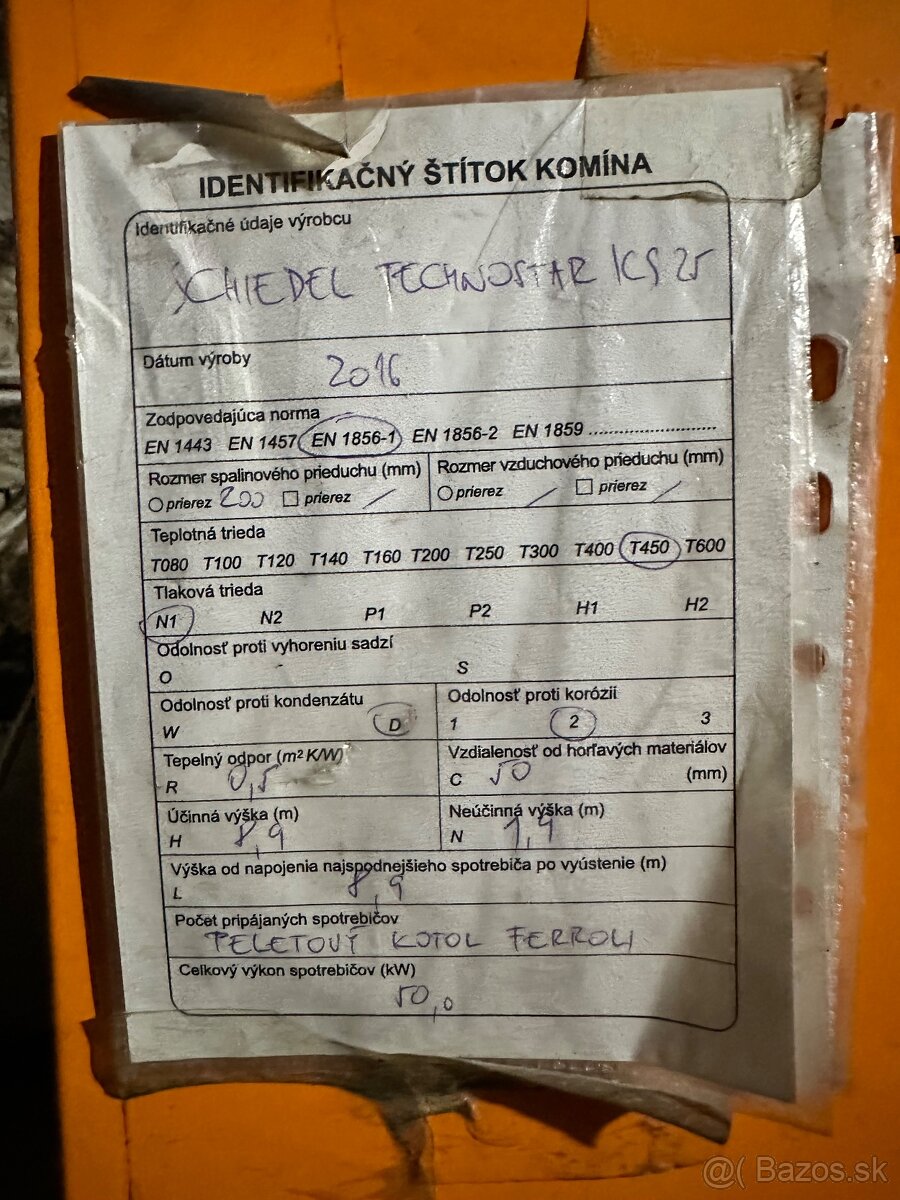 IDENTIFIKAČNÝ ŠTÍTOK KOMÍNA
Identifikačné údaje výrobcu
SCHIEDEL TECHNOSTAR ICS 25
Dátum výroby
2016
Zodpovedajúca norma
EN 1443 EN 1457 EN 1856-1 EN 1856-2 EN 1859 ........................
Rozmer spalinového prieduchu (mm)
prierez 200 prierez /
Rozmer vzduchového prieduchu (mm)
prierez / prierez /
Teplotná trieda
T080 T100 T120 T140 T160 T200 T250 T300 T400 T450 T600
Tlaková trieda
N1 N2 P1 P2 H1 H2
Odolnosť proti vyhoreniu sadzí
O S
Odolnosť proti kondenzátu
W D
Odolnosť proti korózii
1 2 3
Tepelný odpor (m² K/W)
R 0,5
Vzdialenosť od horľavých materiálov
C 50 (mm)
Účinná výška (m)
H 8,9
Neúčinná výška (m)
N 1,4
Výška od napojenia najspodnejšieho spotrebiča po vyústenie (m)
L 8,9
Počet pripájaných spotrebičov
PELETOVÝ KOTOL FERROLI
Celkový výkon spotrebičov (kW)
50,0
@( Bazos.sk